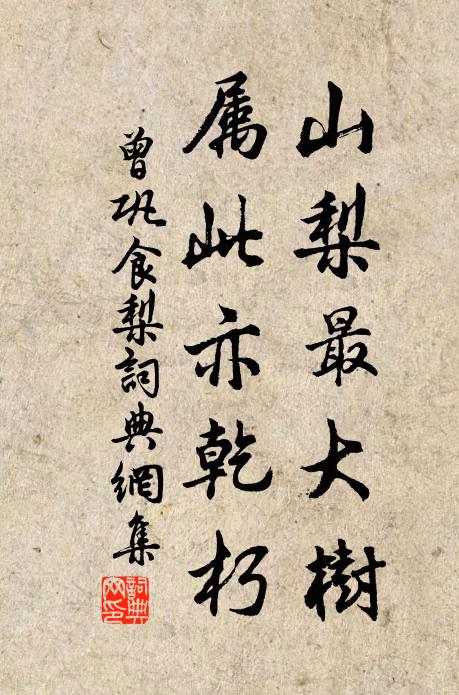 山梨最大樹
属此亦乾朽
曾巩食梨詞典網集
詞典网印